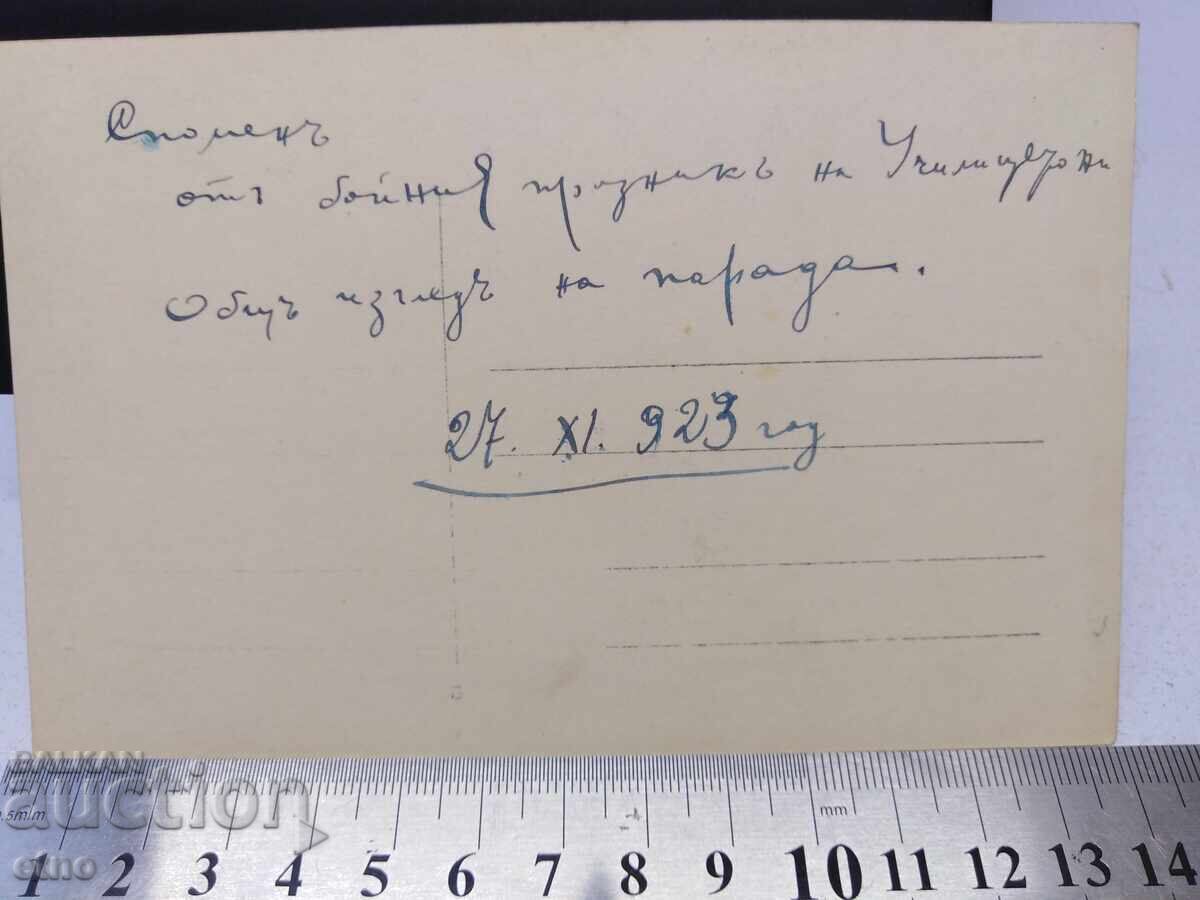 Споменъ
отъ бойния празникъ на Училището ни
Общъ изгледъ на парада.
27. XI. 923 год
BALKAN
auction
etno
0.5m/m
mm
1 2 3 4 5 6 7 8 9 10 11 12 13 14